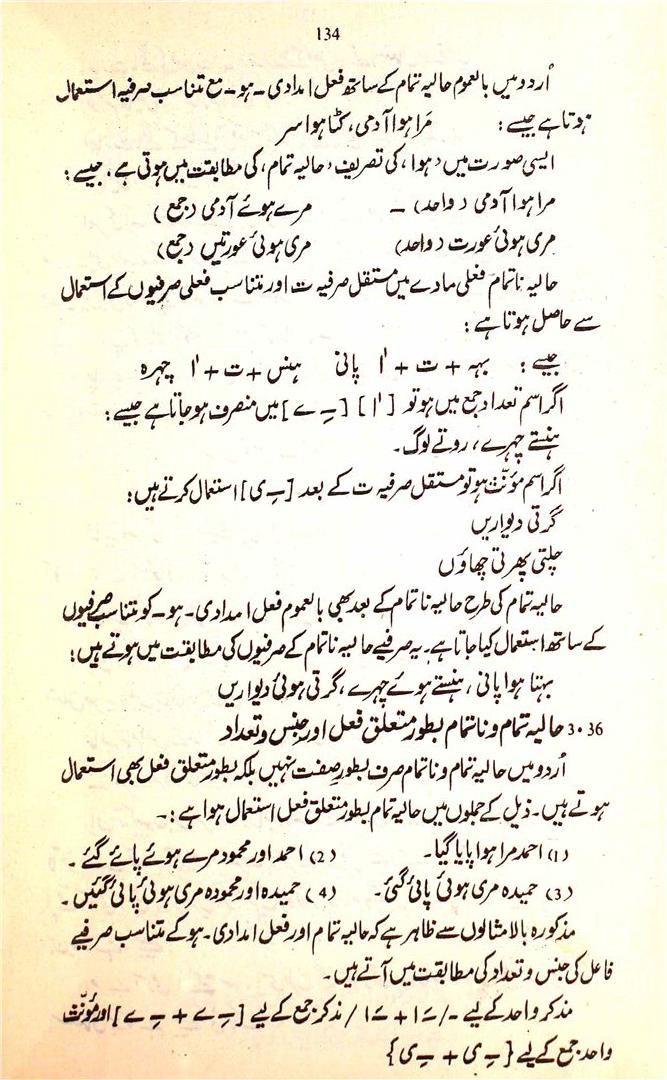 134
اُردو میں بالعموم حالیہ تمام کے ساتھ فعل امدادی ۔ ہو ۔ مع متناسب صرفیہ استعمال
ہوتا ہے جیسے : مَرا ہوا آدمی، کٹا ہوا سر
ایسی صورت میں ' ہوا ' کی تصریف ' حالیہ تمام ' کی مطابقت میں ہوتی ہے ، جیسے :
مرا ہوا آدمی ( واحد ) — مرے ہوئے آدمی ( جمع )
مری ہوئی عورت ( واحد ) مری ہوئی عورتیں ( جمع )
حالیہ ناتمام فعلی مادے میں مستقل صرفیہ ت اور متناسب فعلی صرفیوں کے استعمال
سے حاصل ہوتا ہے :
جیسے : بہہ + ت + ا' پانی ہنس + ت + ا' چہرہ
اگر اسم تعداد جمع میں ہو تو [ ا' ] [ ـِ ے ] میں منصرف ہو جاتا ہے جیسے :
ہنستے چہرے ، روتے لوگ ۔
اگر اسم مؤنّث ہو تو مستقل صرفیہ ت کے بعد [ ـِ ی ] استعمال کرتے ہیں :
گرتی دیواریں
چلتی پھرتی چھاؤں
حالیہ تمام کی طرح حالیہ ناتمام کے بعد بھی بالعموم فعل امدادی ۔ ہو ۔ کو متناسب صرفیوں
کے ساتھ استعمال کیا جاتا ہے ۔ یہ صرفیے حالیہ ناتمام کے صرفیوں کی مطابقت میں ہوتے ہیں :
بہتا ہوا پانی ، ہنستے ہوئے چہرے ، گرتی ہوئی دیواریں
3.36 حالیہ تمام و ناتمام بطور متعلق فعل اور جنس و تعداد
اُردو میں حالیہ تمام و ناتمام صرف بطور صفت نہیں بلکہ بطور متعلق فعل بھی استعمال
ہوتے ہیں ۔ ذیل کے جملوں میں حالیہ تمام بطور متعلق فعل استعمال ہوا ہے :۔
(1) احمد مرا ہوا پایا گیا ۔ (2) احمد اور محمود مرے ہوئے پائے گئے ۔
(3) حمیدہ مری ہوئی پائی گئی ۔ (4) حمیدہ اور محمودہ مری ہوئی پائی گئیں ۔
مذکورہ بالا مثالوں سے ظاہر ہے کہ حالیہ تمام اور فعل امدادی ۔ ہو کے متناسب صرفیے
فاعل کی جنس و تعداد کی مطابقت میں آتے ہیں ۔
مذکر واحد کے لیے ۔/ ـَ ا + ـَ ا / مذکر جمع کے لیے [ ـِ ے + ـِ ے ] اور مؤنّث
واحد جمع کے لیے { ـِ ی + ـِ ی }